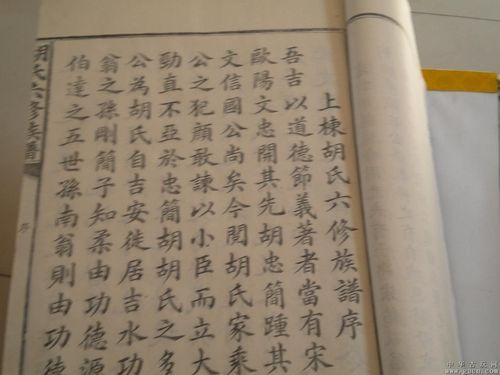 上棟胡氏六修族譜序
吾吉以道德節義著者當有宋
歐陽文忠開其先胡忠簡踵其
文信國公尚矣今閱胡氏家乘
公之犯顏敢諫以小臣而立大
勁直不亞於忠簡胡胡氏之多
公為胡氏自吉安徙居吉水功
翁之孫剛簡子知柔由功德源
伯達之五世孫南翁則由功德
胡氏六修族譜
序
中华古玩网
www.gucn.com